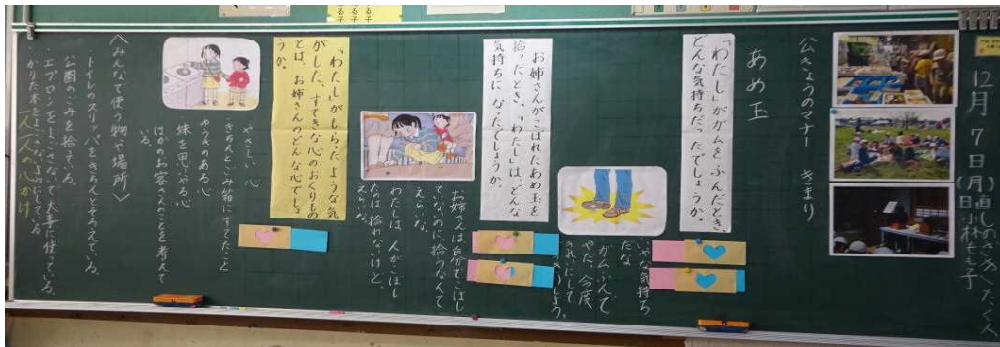 12月7日(月)
公きょうのマナー　きまり
あめ玉
「わたし」がガムをふんだとき、
どんな気持ちだったでしょうか。
いやな気持ち
だな
ガムふんで
やだ、今度、
きれいにして
お姉さんがこぼれたあめ玉を
拾ったとき、「わたし」は、どんな
気持ちになったでしょうか。
お姉さんは自分がこぼし
ていないのに拾うなんて
えらいな。
わたしは、人がこぼし
たのは拾わないけど、
えらいな。
「わたし」がもらったような気
がした、すてきな心のおくりもの
とは、お姉さんのどんな心でしょ
うか。
やさしい心
・きちんと、ごみ箱にすてたこと
やうきのある心
妹を思いやる心
ほかのお客さんのことを考えて
いる。
〈みんなで使う物や場所〉
トイレのスリッパをきちんとそろえている。
公園のごみを拾っている。
・エプロンをよごさないで大事に使っている。
かりた本をよごさないようにしている
一人一人の心がけ
る子
る子